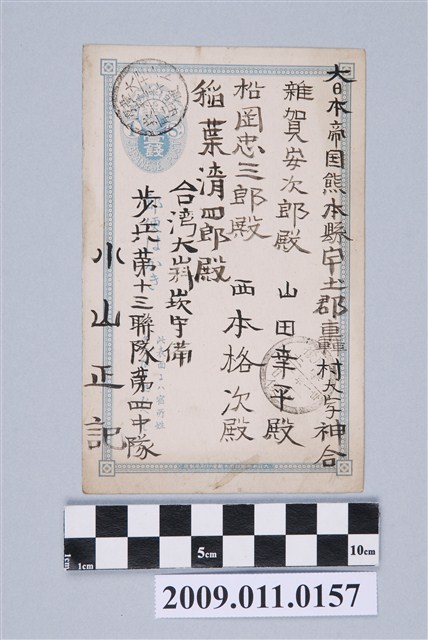 大日本帝国熊本縣宇土郡轟村大字神合
雜賀安次郎殿 山田幸平殿
松岡忠三郎殿 西本格次殿
稲葉清四郎殿
台湾大嵙崁守備
歩兵第十三聯隊第四中隊
小山正記
1cm
1cm
5cm
10cm
2009.011.0157